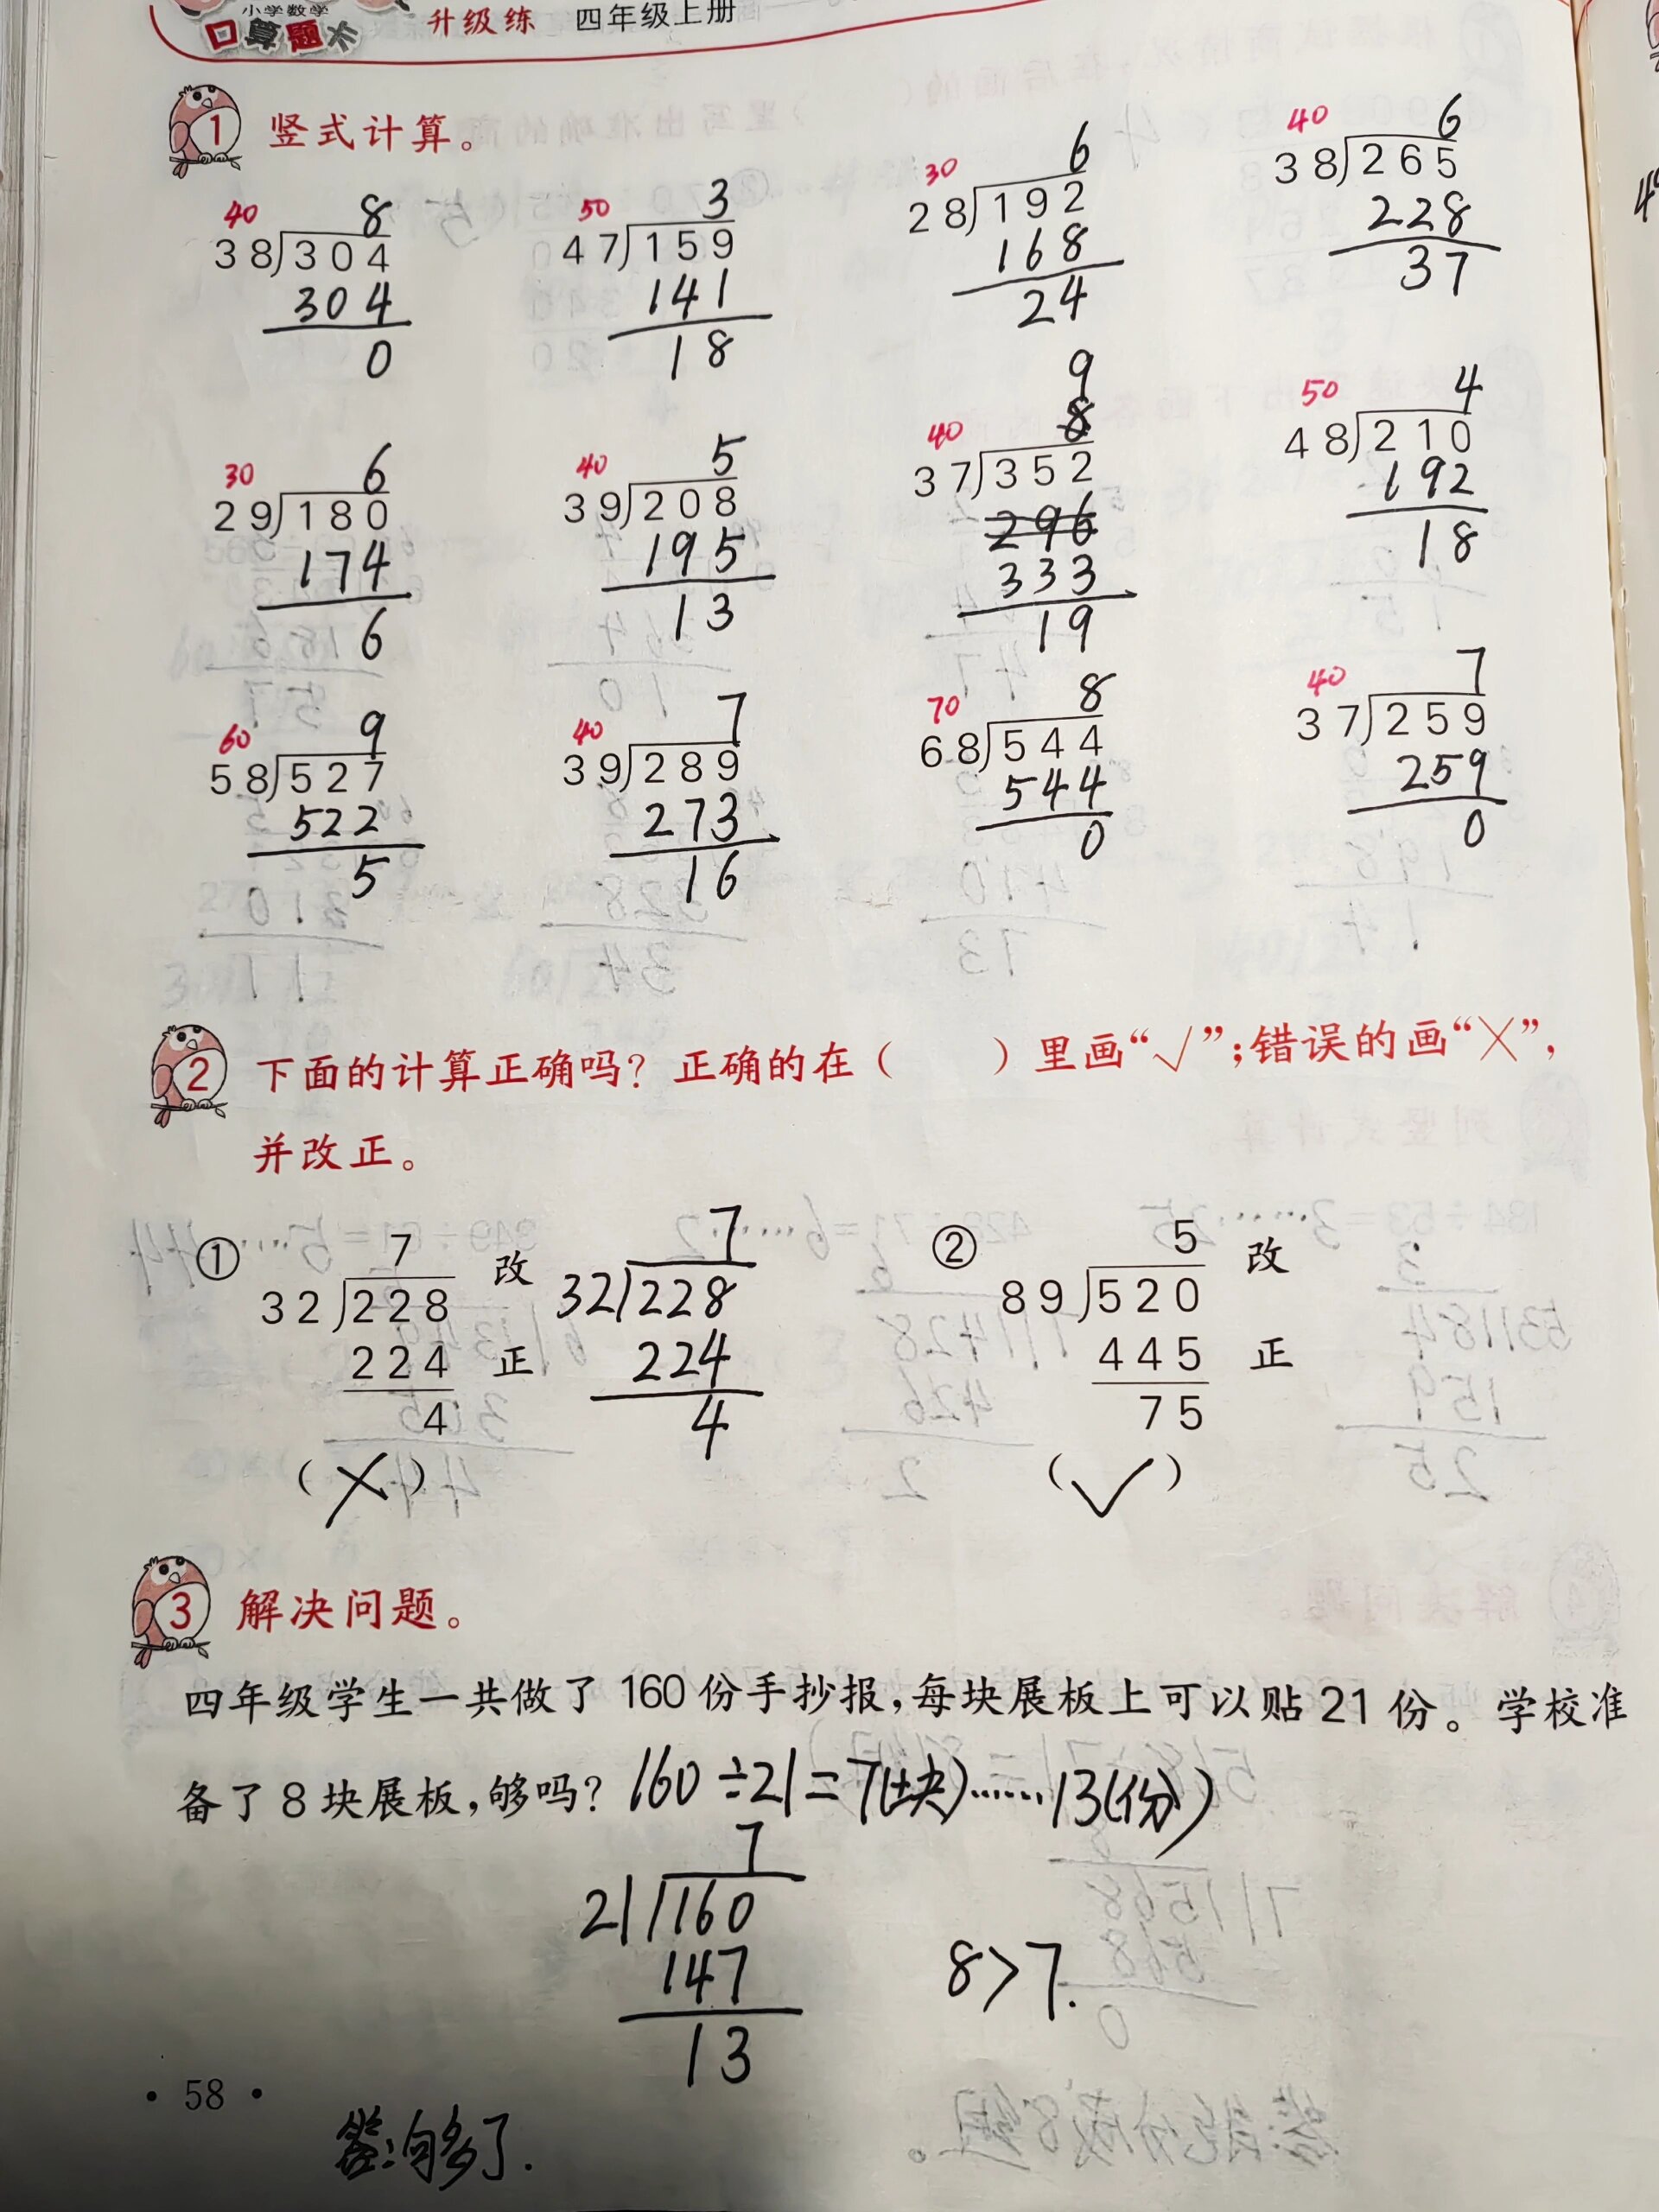 小学数学
口算题卡 升级练 四年级上册
1 竖式计算。
40 8
38)304
304
0
50 3
47)159
141
18
30 6
28)192
168
24
40 6
38)265
228
37
30 6
29)180
174
6
40 5
39)208
195
13
9
40 8
37)352
296
333
19
50 4
48)210
192
18
60 9
58)527
522
5
40 7
39)289
273
16
70 8
68)544
544
0
40 7
37)259
259
0
2 下面的计算正确吗?正确的在( )里画“√”;错误的画“╳”,
并改正。
① 7
32)228
224
4
(╳)
改正
7
32)228
224
4
② 5
89)520
445
75
(√)
改正
3 解决问题。
四年级学生一共做了160份手抄报,每块展板上可以贴21份。学校准
备了8块展板,够吗? 160÷21=7(块)……13(份)
7
21)160
147
13
8>7.
·58·
答:够了.